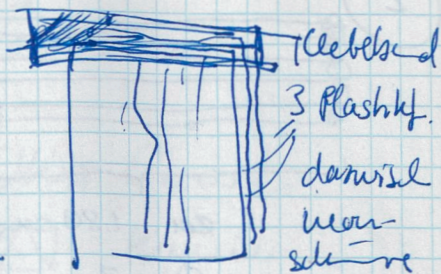 Klebeband
3 Plastikf.
dazwisch
neon-
schnüre